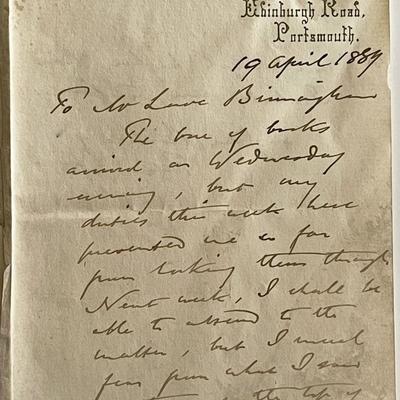 Edinburgh Road,
Portsmouth.
19 April 1889
To Mr Lowe Birmingham
The box of books
arrived on Wednesday
evening, but my
duties this week have
prevented me so far
from looking them through
Next week, I shall be
able to attend to the
matter, but I much
fear from what I saw
the top of